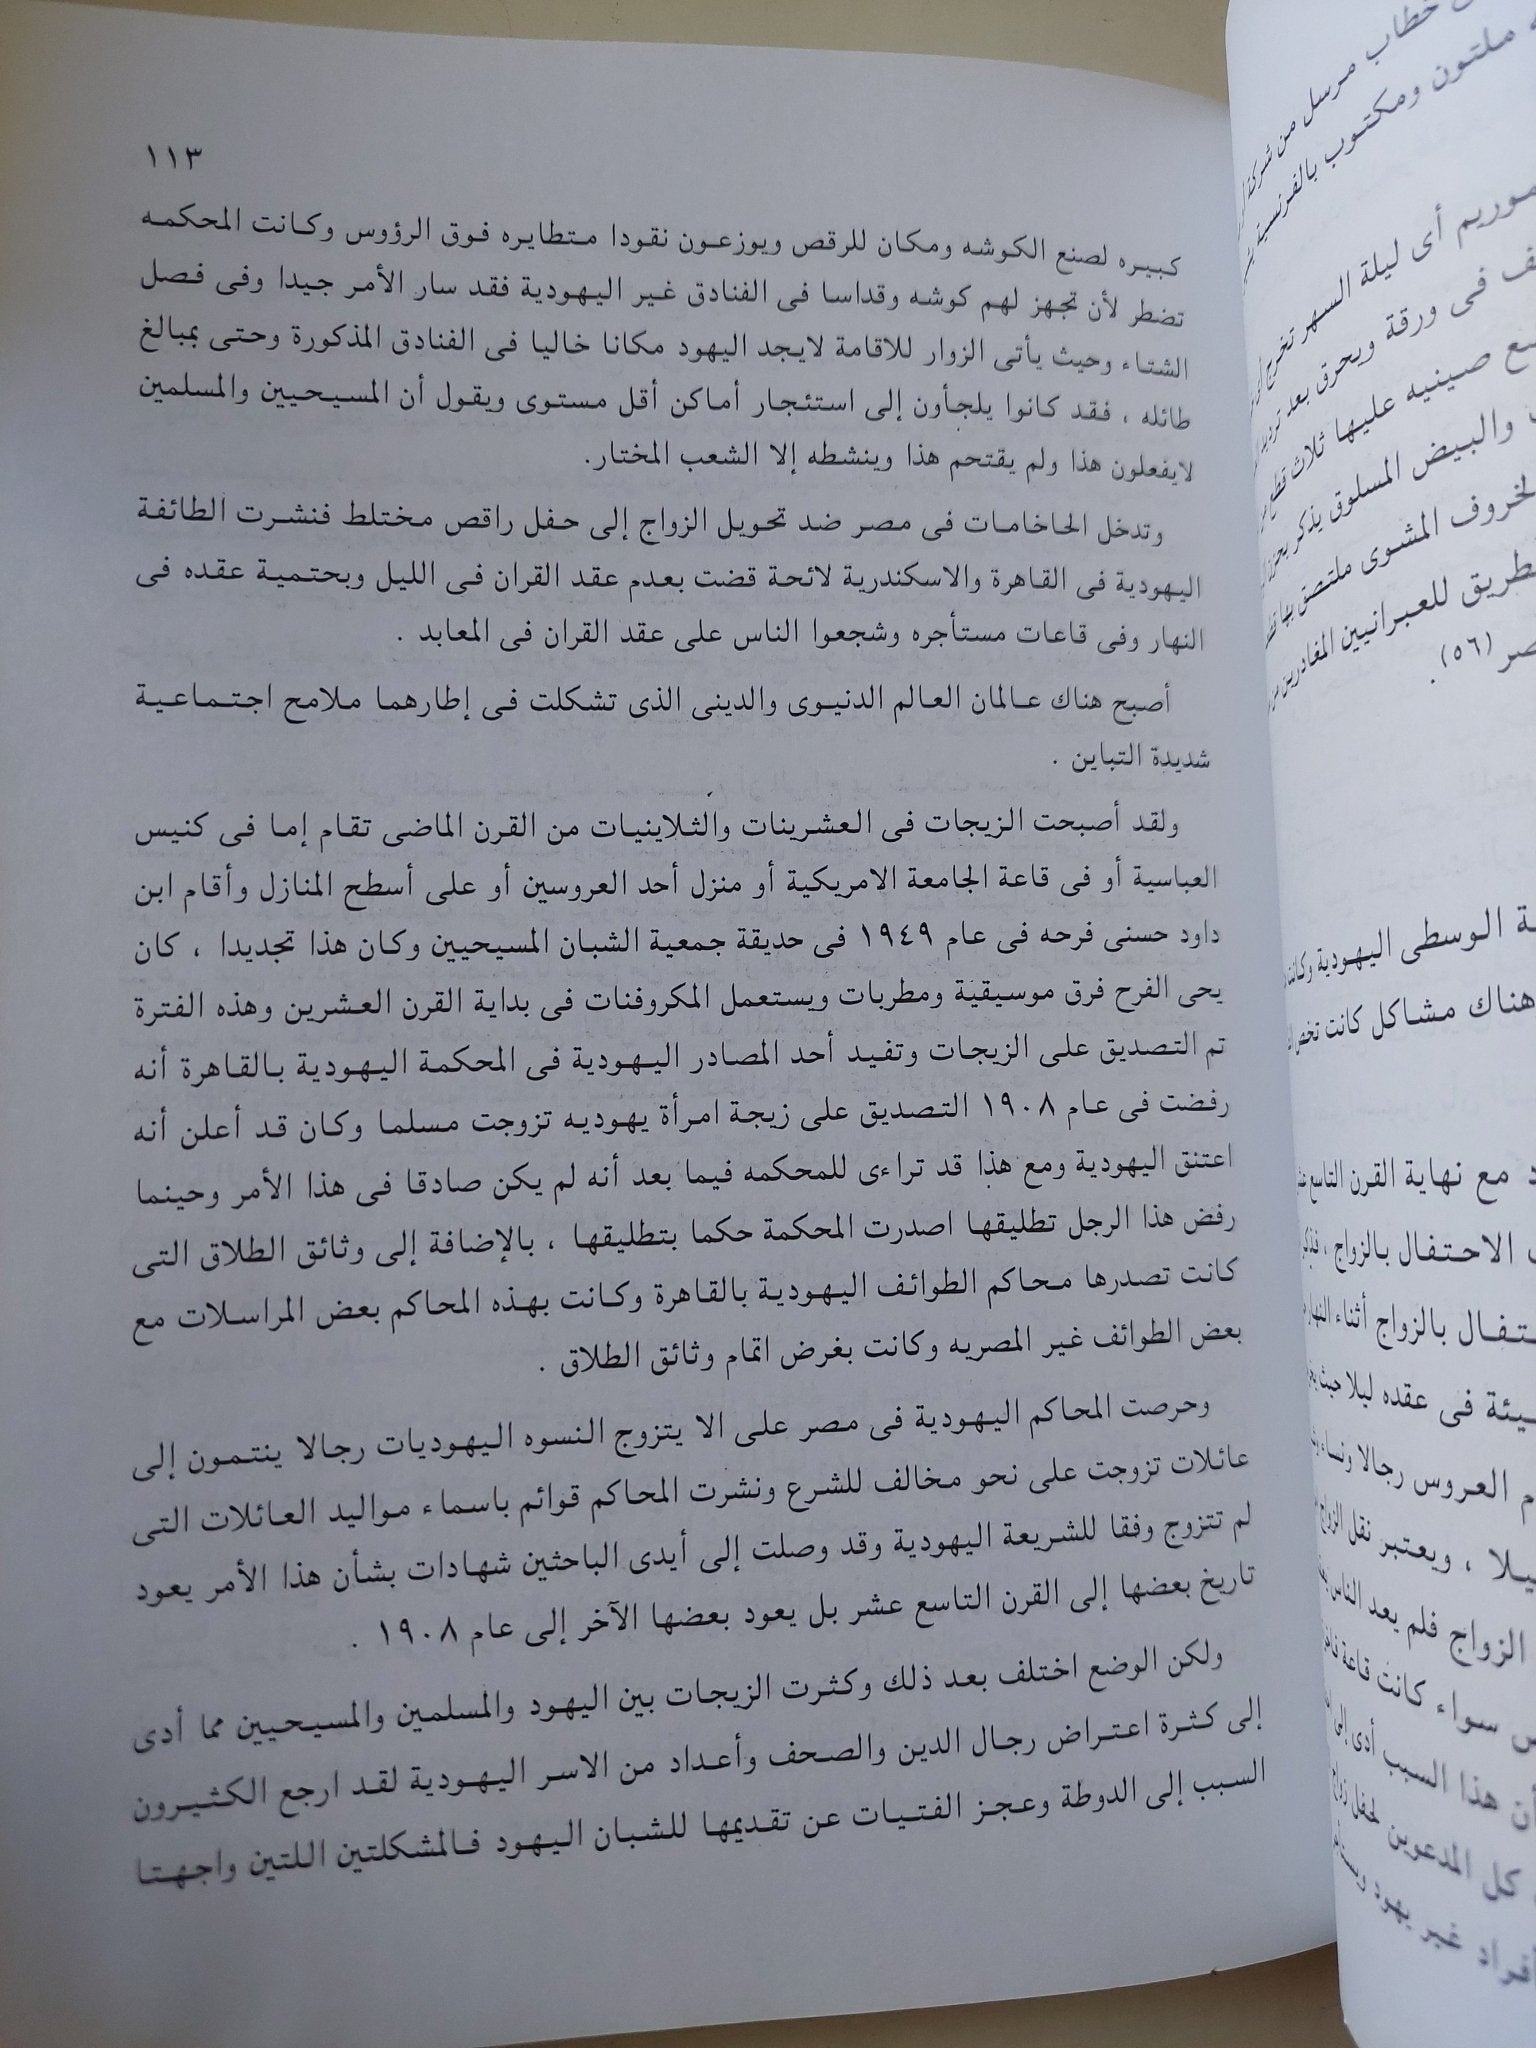 ١١٣
كبيره لصنع الكوشه ومكان للرقص ويوزعون نقودا متطايره فوق الرؤوس وكانت المحكمه
تضطر لأن تجهز لهم كوشه وقداسا فى الفنادق غير اليهودية فقد سار الأمر جيدا وفى فصل
الشتاء وحيث يأتى الزوار للاقامة لايجد اليهود مكانا خاليا فى الفنادق المذكورة وحتى بمبالغ
طائله ، فقد كانوا يلجأون إلى استئجار أماكن أقل مستوى ويقول أن المسيحيين والمسلمين
لايفعلون هذا ولم يقتحم هذا وينشطه إلا الشعب المختار.
وتدخل الحاخامات فى مصر ضد تحويل الزواج إلى حفل راقص مختلط فنشرت الطائفة
اليهودية فى القاهرة والاسكندرية لائحة قضت بعدم عقد القران فى الليل وبحتمية عقده فى
النهار وفى قاعات مستأجره وشجعوا الناس على عقد القران فى المعابد .
أصبح هناك عالمان العالم الدنيوى والدينى الذى تشكلت فى إطارهما ملامح اجتماعية
شديدة التباين .
ولقد أصبحت الزيجات فى العشرينات والثلاينيات من القرن الماضى تقام إما فى كنيس
العباسية أو فى قاعة الجامعة الامريكية أو منزل أحد العروسين أو على أسطح المنازل وأقام ابن
داود حسنى فرحه فى عام ١٩٤٩ فى حديقة جمعية الشبان المسيحيين وكان هذا تجديدا ، كان
يحى الفرح فرق موسيقية ومطربات ويستعمل المكروفنات فى بداية القرن العشرين وهذه الفترة
تم التصديق على الزيجات وتفيد أحد المصادر اليهودية فى المحكمة اليهودية بالقاهرة أنه
رفضت فى عام ١٩٠٨ التصديق على زيجة امرأة يهوديه تزوجت مسلما وكان قد أعلن أنه
اعتنق اليهودية ومع هذا قد تراءى للمحكمه فيما بعد أنه لم يكن صادقا فى هذا الأمر وحينما
رفض هذا الرجل تطليقها اصدرت المحكمة حكما بتطليقها ، بالإضافة إلى وثائق الطلاق التى
كانت تصدرها محاكم الطوائف اليهودية بالقاهرة وكانت بهذه المحاكم بعض المراسلات مع
بعض الطوائف غير المصريه وكانت بغرض اتمام وثائق الطلاق .
وحرصت المحاكم اليهودية فى مصر على الا يتزوج النسوه اليهوديات رجالا ينتمون إلى
عائلات تزوجت على نحو مخالف للشرع ونشرت المحاكم قوائم باسماء مواليد العائلات التى
لم تتزوج وفقا للشريعة اليهودية وقد وصلت إلى أيدى الباحثين شهادات بشأن هذا الأمر يعود
تاريخ بعضها إلى القرن التاسع عشر بل يعود بعضها الآخر إلى عام ١٩٠٨ .
ولكن الوضع اختلف بعد ذلك وكثرت الزيجات بين اليهود والمسلمين والمسيحيين مما أدى
إلى كثرة اعتراض رجال الدين والصحف وأعداد من الاسر اليهودية لقد ارجع الكثيرون
السبب إلى الدوطة وعجز الفتيات عن تقديمها للشبان اليهود فالمشكلتين اللتين واجهتا
خطاب مرسل من شركة
ملتون ومكتوب بالفرنسية
موريم أى ليلة السهر تخرج
فى ورقة ويحرق بعد
صينيه عليها ثلاث قطع
والبيض المسلوق يذكر
الخروف المشوى ملتصق بها
للعبرانيين المغادرين من
(٥٦) .
الوسطى اليهودية وكانت
هناك مشاكل كانت تخص
مع نهاية القرن التاسع
الاحتفال بالزواج ،
بالزواج أثناء النهار
فى عقده ليلا حيث
العروس رجالا ونساء
، ويعتبر نقل الزواج
الزواج فلم يعد الناس
سواء كانت قاعة
أن هذا السبب أدى إلى
كل المدعوين لحفل
أفراد غير يهود